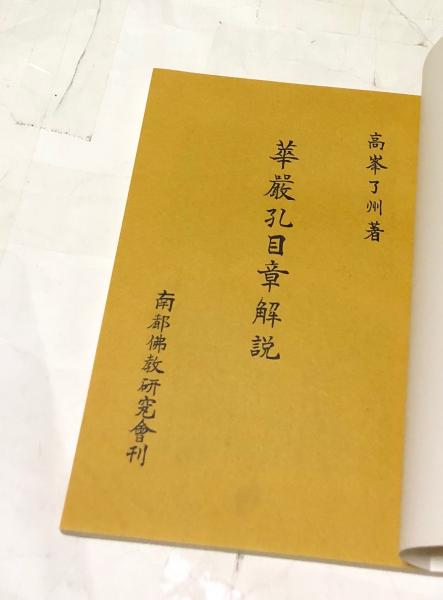 高峯了州著
華嚴孔目章解説
南都佛教研究會刊